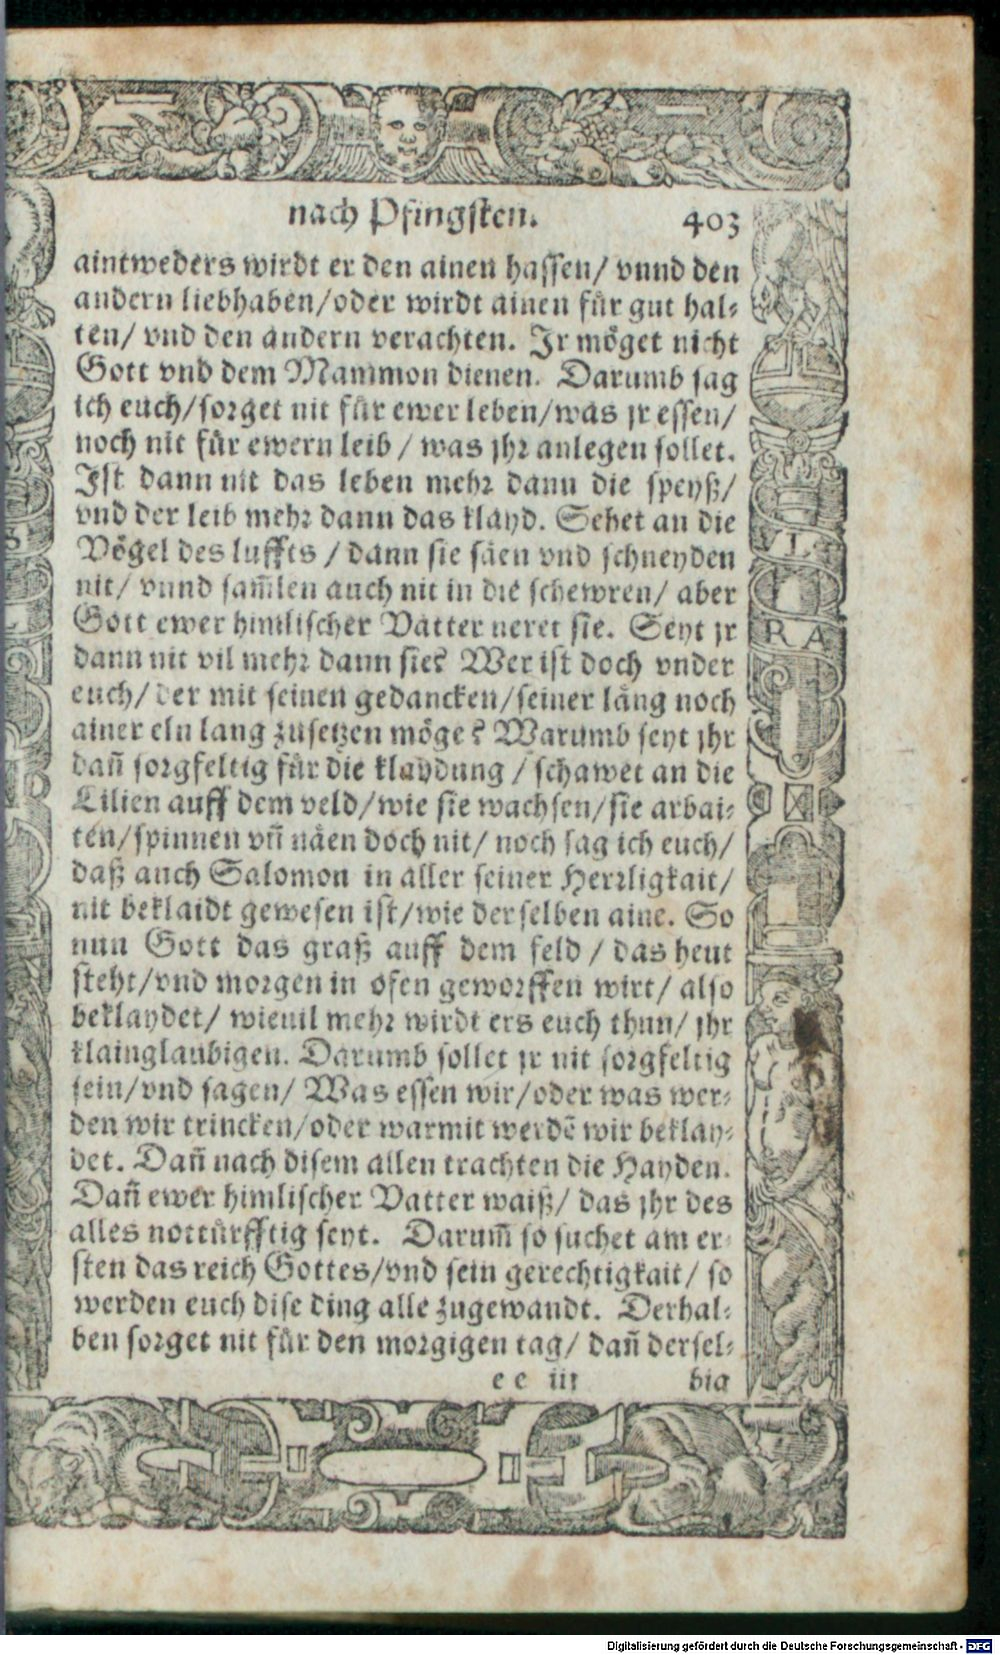 nach Pfingsten. 403
aintweders wirdt er den ainen hassen/ vnnd den
andern liebhaben/oder wirdt ainen für gut hal⸗
ten/ vnd den andern verachten. Ir möget nicht
Gott vnd dem Mammon dienen. Darumb sag
ich euch/sorget nit für ewer leben/was jr essen/
noch nit für ewern leib / was jhr anlegen sollet.
Ist dann nit das leben mehr dann die speyß/
vnd der leib mehr dann das klayd. Sehet an die
Vögel des luffts / dann sie säen vnd schneyden
nit/ vnnd sam̃len auch nit in die schewren/ aber
Gott ewer himlischer Vatter neret sie. Seyt jr
dann nit vil mehr dann sie? Wer ist doch vnder
euch/ der mit seinen gedancken/seiner läng noch
ainer eln lang zusetzen möge? Warumb seyt jhr
dañ sorgfeltig für die klaydung / schawet an die
Lilien auff dem veld/wie sie wachsen/sie arbai⸗
ten/spinnen vñ näen doch nit/ noch sag ich euch/
daß auch Salomon in aller seiner Herrligkait/
nit beklaidt gewesen ist/wie derselben aine. So
nun Gott das graß auff dem feld / das heut
steht/vnd morgen in ofen geworffen wirt/ also
beklaydet/ wieuil mehr wirdt ers euch thun/ jhr
klainglaubigen. Darumb sollet jr nit sorgfeltig
sein/vnd sagen/ Was essen wir/oder was wer⸗
den wir trincken/oder warmit werdẽ wir beklay⸗
det. Dañ nach disem allen trachten die Hayden.
Dañ ewer himlischer Vatter waiß/ das jhr des
alles nottürfftig seyt. Darum̃ so suchet am er⸗
sten das reich Gottes/vnd sein gerechtigkait/ so
werden euch dise ding alle zugewandt. Derhal⸗
ben sorget nit für den morgigen tag/ dañ dersel⸗
e e iii big
RA
Digitalisierung gefördert durch die Deutsche Forschungsgemeinschaft - DFG